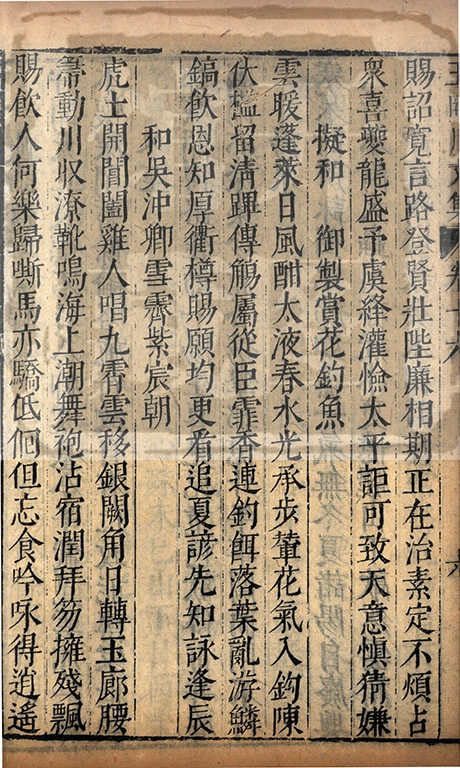 王臨川文集 卷十六 六
賜詔寬言路登賢壯陛廉相期正在治素定不煩占
衆喜夔龍盛予虞絳灌憸太平詎可致天意慎猜嫌
擬和 御製賞花釣魚
雲暖蓬萊日風酣太液春水光承步輦花氣入鈎陳
伏檻留清蹕傳觴屬從臣霏香連釣餌落葉亂游鱗
鎬飲恩知厚衢樽賜願均更看追夏諺先知詠逢辰
和吳沖卿雪霽紫宸朝
虎士開閶闔雞人唱九霄雲移銀闕角日轉玉廊腰
箒動川収潦靴鳴海上潮舞袍沾宿潤拜笏擁殘飄
賜飲人何樂歸嘶馬亦驕低佪但忘食吟咏得逍遙